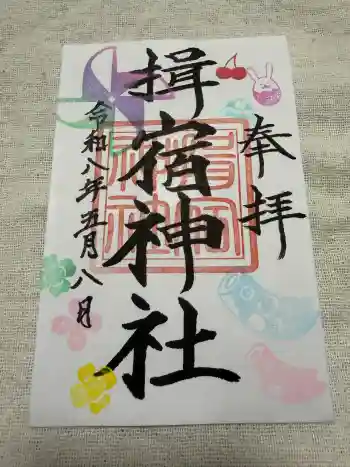 奉拝
揖宿神社
令和八年五月八日